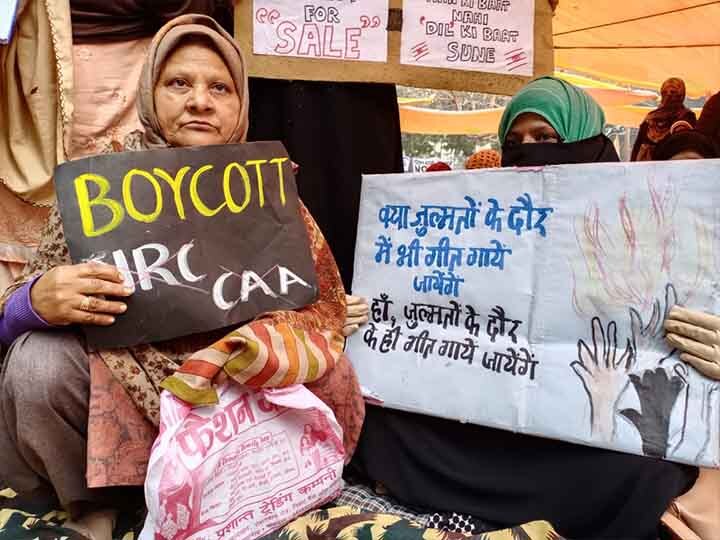 FOR
“SALE”
KI BAAT
NAHI
DIL KI BAAT
SUNE
BOYCOTT
NRC CAA
क्या ज़ुल्मतों के दौर
में भी गीत गायें
जायेंगें
हाँ, ज़ुल्मतों के दौर
के ही गीत गायें जायेंगें
फैशन
प्रशान्त ट्रेडिंग कम्पनी